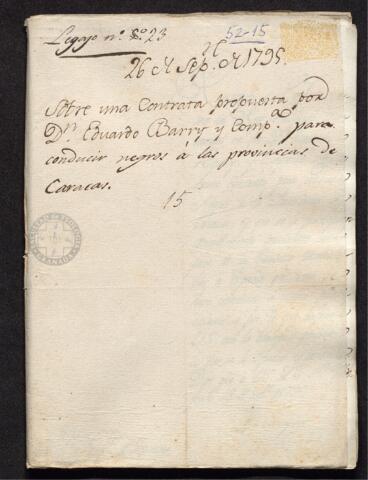 Legajo nº. 8º. 23
52-15
26 de Sepre. de 1795.
Sobre una Contrata propuesta por
Dn. Eduardo Barry y Compª. para
conducir negros á las provincias de
Caracas.
15